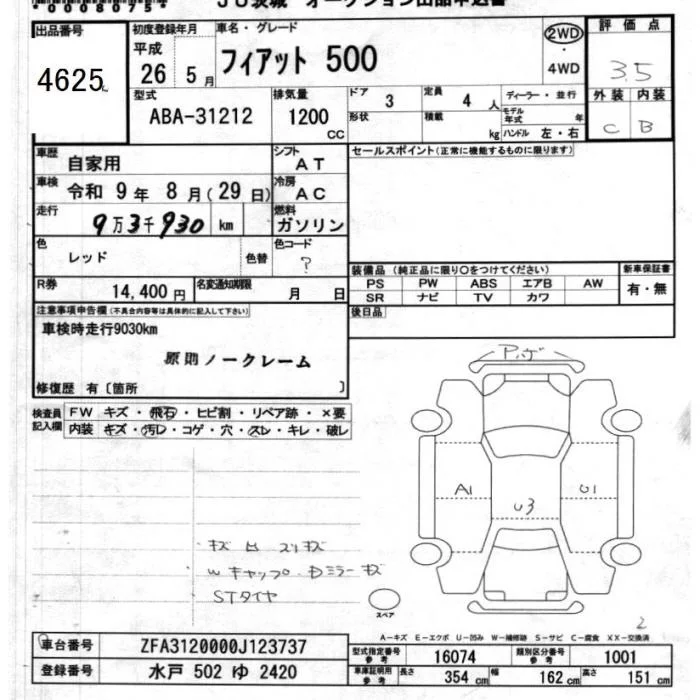 *0008075*
JU茨城 オークション出品申込書
出品番号
4625
初度登録年月
平成
26 5月
車名・グレード
フィアット 500
2WD
・
4WD
評価点
3.5
型式
ABA-31212
排気量
1200
CC
ドア 3
形状
定員 4 人
積載 kg
ディーラー・並行
モデル年式 年
ハンドル 左・右
外装 内装
C B
車歴 自家用
シフト AT
車検 令和 9年 8月(29日)
冷房 AC
走行 9万3千930 km
燃料 ガソリン
色 レッド 色替
色コード ?
R券 14,400円
名変通知期限 月 日
セールスポイント(正常に機能するものに限ります)
装備品(純正品に限り○をつけてください)
PS PW ABS エアB AW
SR ナビ TV カワ
新車保証書
有・無
後日品
注意事項申告欄(不具合内容等は具体的に記入して下さい)
車検時走行9030km
原則ノークレーム
修復歴 有〔箇所 〕
検査員記入欄
FW キズ・飛石・ヒビ割・リペア跡・×要
内装 キズ・汚レ・コゲ・穴・スレ・キレ・破レ
A1
U3
U1
Wキャップ
STタイヤ
スペア
2
A−キズ E−エクボ U−凹み W−補修跡 S−サビ C−腐食 XX−交換済
車台番号 ZFA3120000J123737
登録番号 水戸 502 ゆ 2420
型式指定番号 参考 16074
類別区分番号 参考 1001
車庫証明用 参考 長さ 354 cm 幅 162 cm 高さ 151 cm